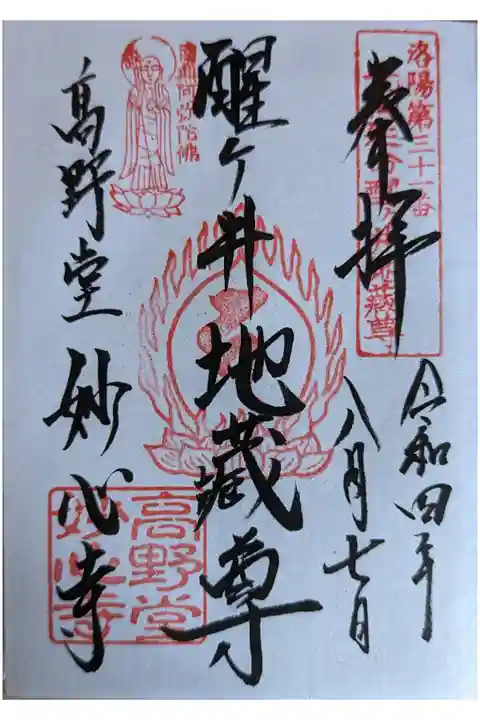 奉拝
洛陽第三十一番
令和四年
八月七日
醒ヶ井地蔵尊
南無阿弥陀佛
高野堂 妙心寺
高野堂
妙心寺